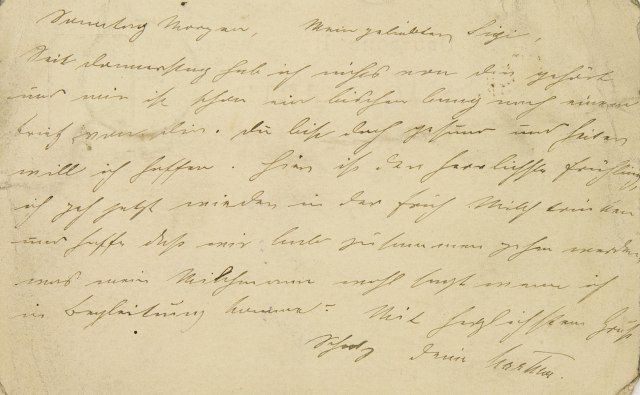 Sonntag Morgen, Mein geliebter Sigi,
Seit Donnerstag hab ich nichts von dir gehört
und mir ist schon ein bischen bang nach einem
Brief von dir. Du bist doch gesund und heiter
will ich hoffen. Hier ist der herrlichste Frühling
ich geh jetzt wieder in der Früh Milch trinken
und hoffe daß wir bald zusammen gehen werden,
was mein Milchmann wohl sagt wenn ich
in Begleitung komme? Mit herzlichstem Gruß
Schatz deine Martha.